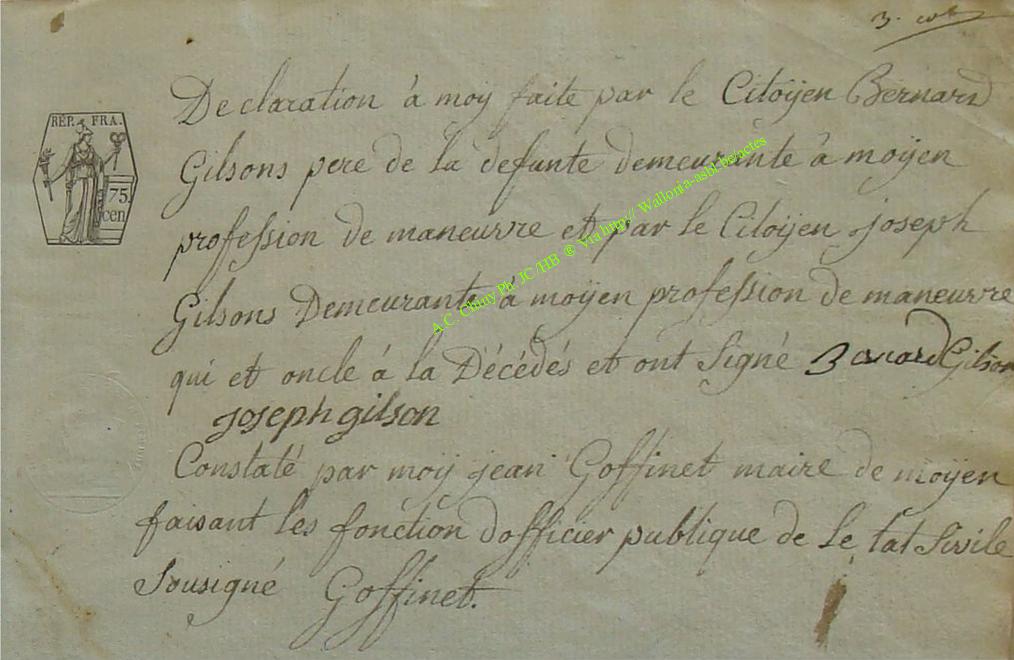 3.
RÉP. FRA.
75.
cen
Declaration à moy faite par le Citoÿen Bernard
Gilsons pere de la defunte demeurante à moÿen
profession de maneuvre et par le Citoÿen joseph
Gilsons Demeurante à moÿen profession de maneuvre
qui et oncle à la Décédés et ont Signé Bernard Gilson
joseph gilson
Constaté par moÿ jean Goffinet maire de moÿen
faisant les fonction dofficier publique de Le tat Sivile
Sousigné Goffinet.
A.C. Chiny Ph. JC /HB ® Via http:// Wallonia-asbl.be/actes